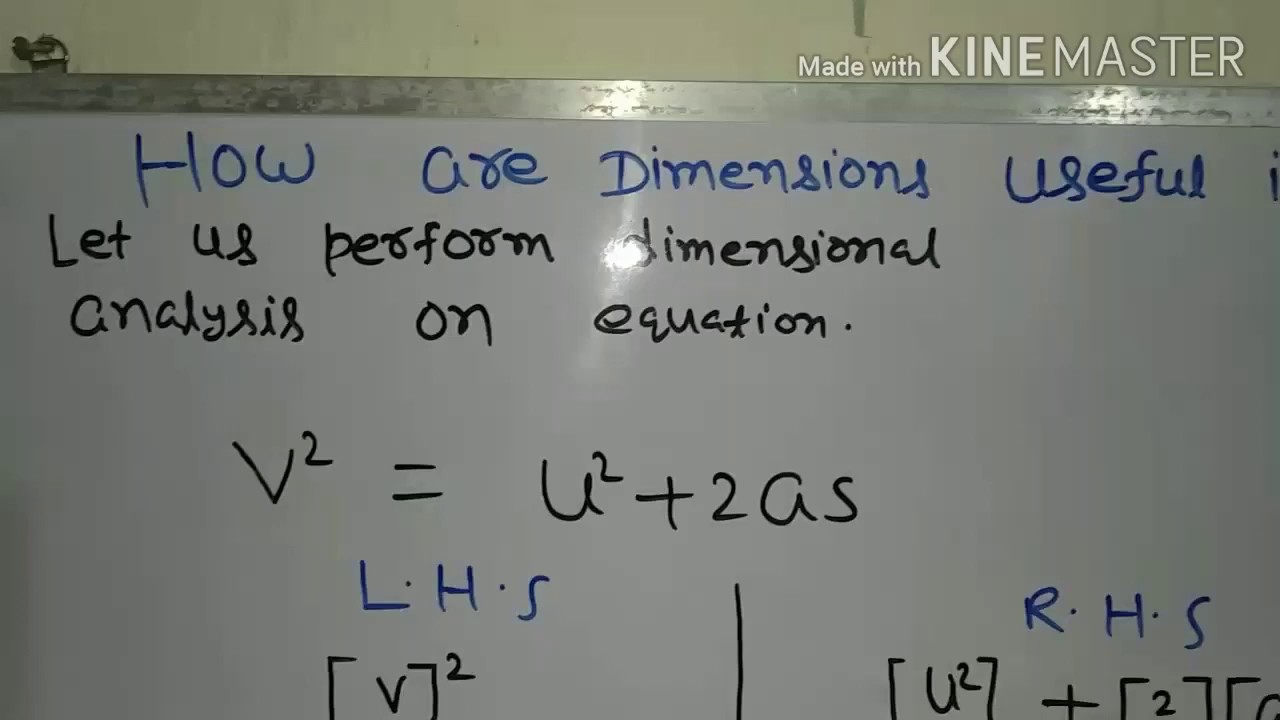 Made with KINEMASTER
How are Dimensions useful i
Let us perform dimensional
analysis on equation.
V² = u² + 2as
L.H.S
R.H.S
[v]²
[u²] + [2][a